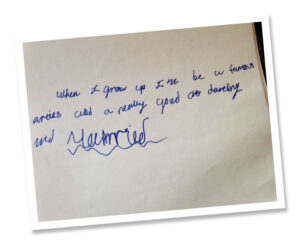 When I grow up I be a famous
and a really good at dancing
and